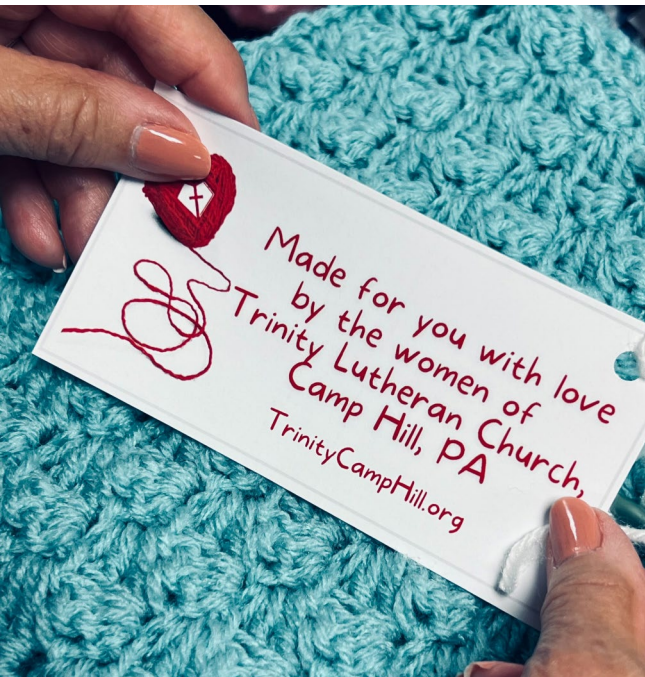 Made for you with love
by the women of
Trinity Lutheran Church,
Camp Hill, PA
TrinityCampHill.org